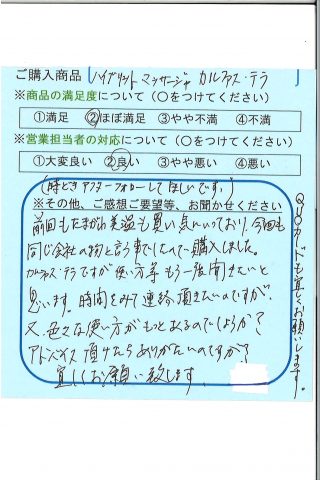 ご購入商品 ハイブリットマッサージャ カルアス・テラ
※商品の満足度について（○をつけてください）
①満足 ②ほぼ満足 ③やや不満 ④不満
※営業担当者の対応について（○をつけてください）
①大変良い ②良い ③やや悪い ④悪い
(時どきアフターフォローしてほしいです。)
※その他、ご感想ご要望等、お聞かせください
前回もたまがわ美温も買い気にいっており、今回も
同じ会社の物と言う事でしたので購入しました。
カルアス・テラですが使い方等もう一度聞きたいと
思います。時間をみて連絡頂きたいのですが、
又色々な使い方がもっとあるのでしょうか？
アドバイス頂けたらありがたいのですが？
宜しくお願い致します。
QUOカードも宜しくお願いします。